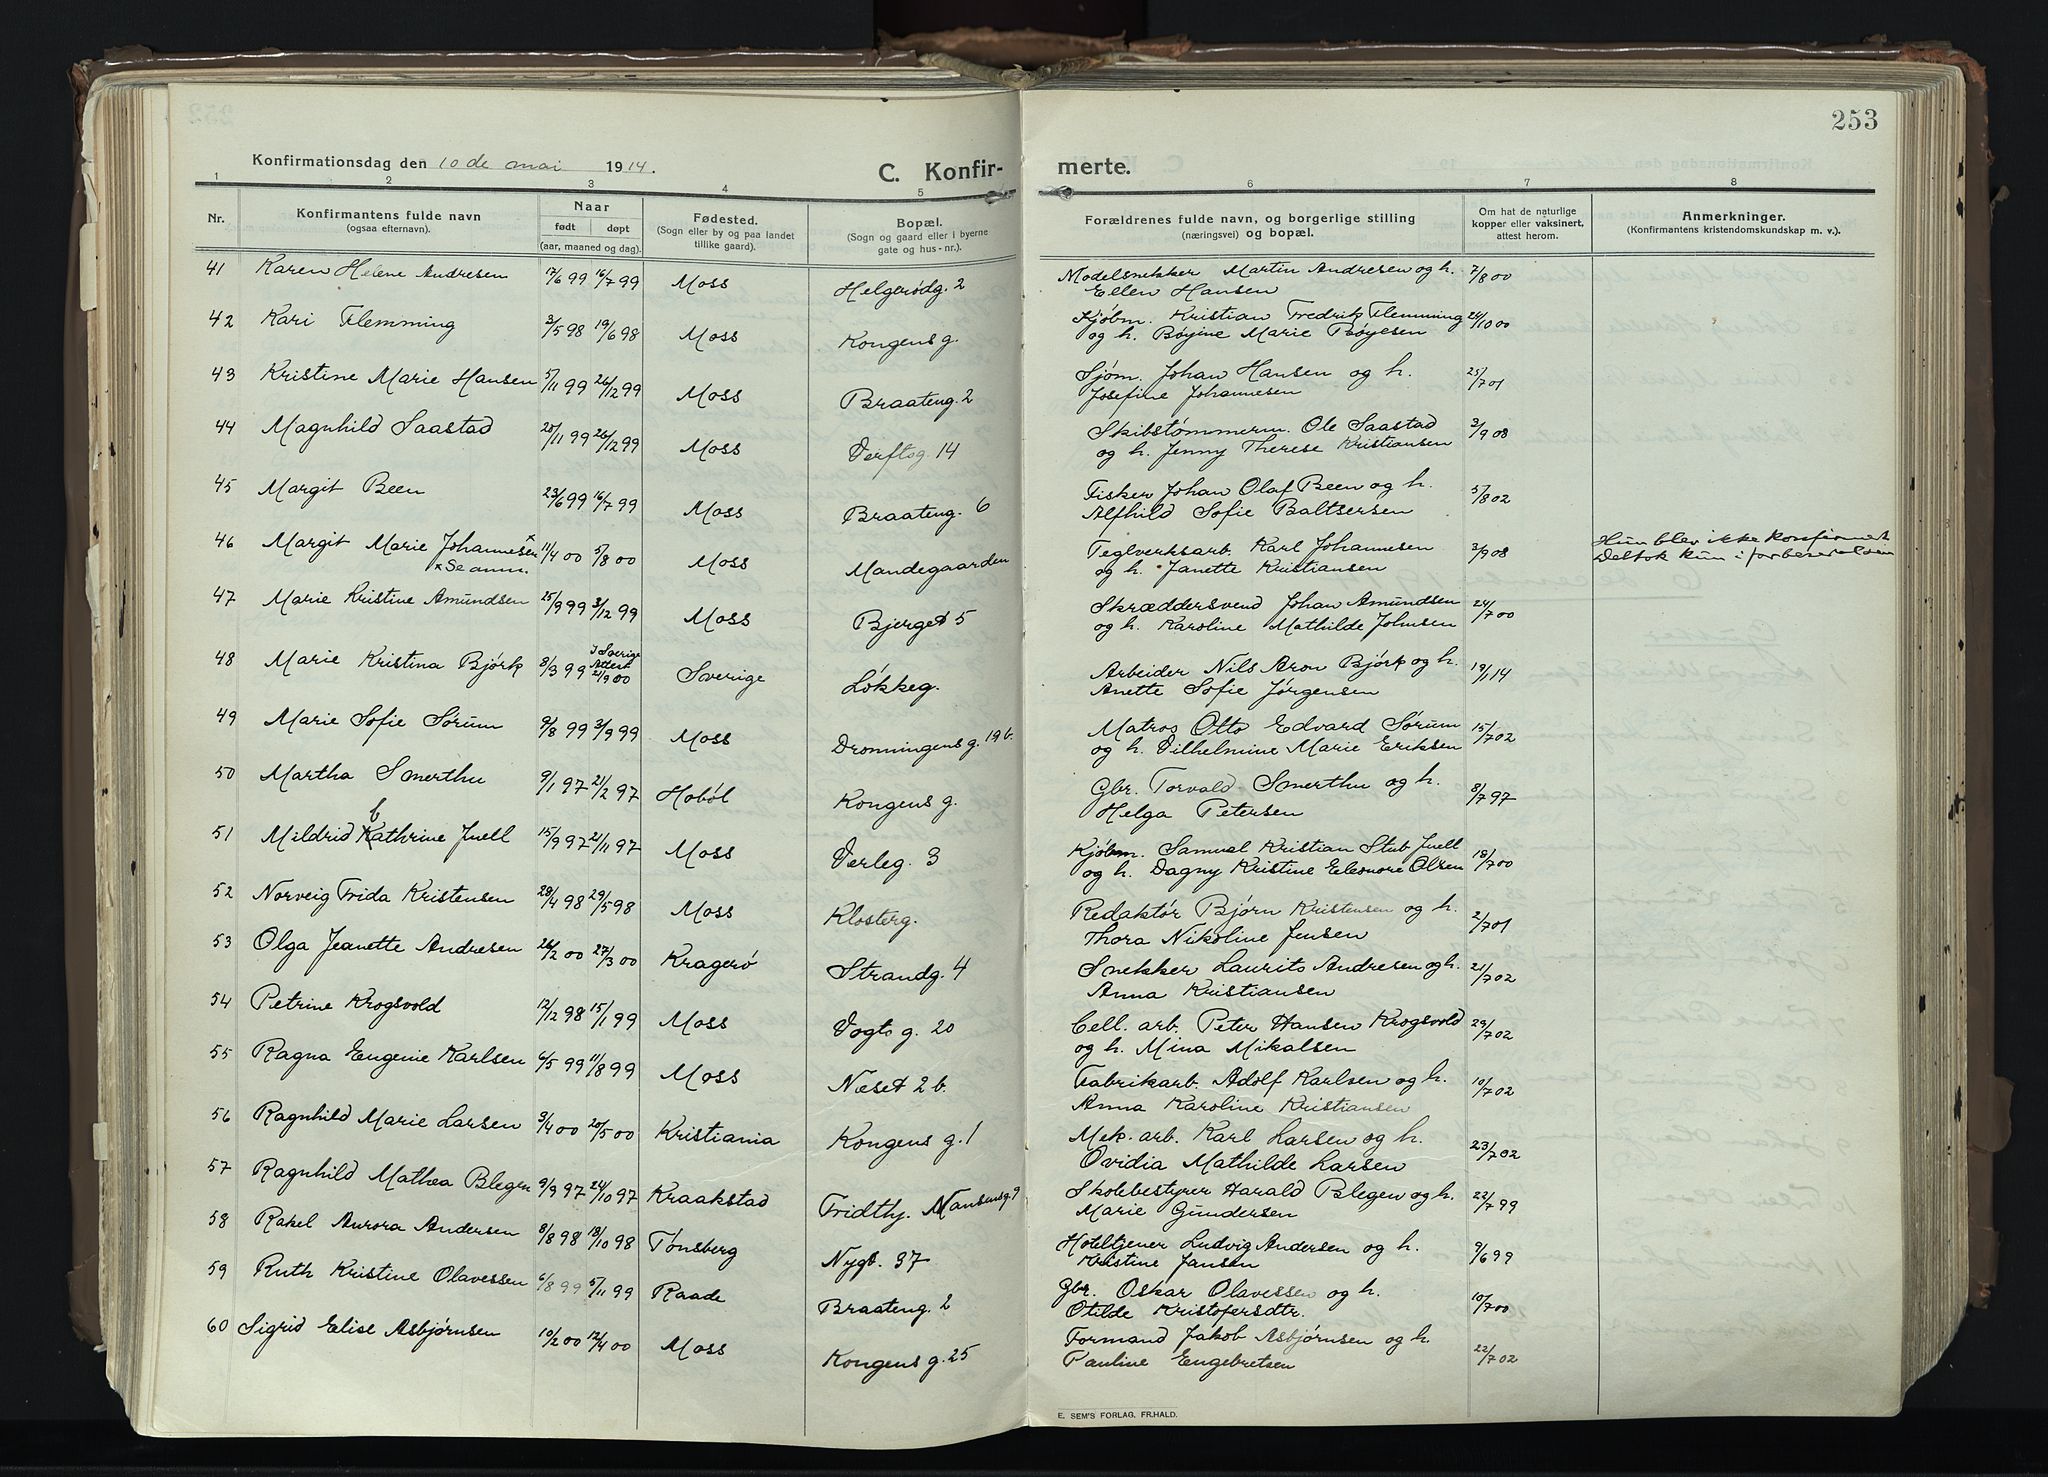 253
Konfirmationsdag den 10de mai 1914.
C. Konfir- merte.
1 2 3 4 5 6 7 8
Nr. Konfirmantens fulde navn (ogsaa efternavn). Naar født døpt (aar, maaned og dag). Fødested. (Sogn eller by og paa landet tillike gaard). Bopæl. (Sogn og gaard eller i byerne gate og hus-nr.). Forældrenes fulde navn, og borgerlige stilling (næringsvei) og bopæl. Om hat de naturlige kopper eller vaksinert, attest herom. Anmerkninger. (Konfirmantens kristendomskundskap m. v.).
41 Karen Helene Andresen 17/6 99 16/7 99 Moss Helgerødg. 2 Modelsnekker Martin Andresen og h. 7/8 00
Ellen Hansen
42 Kari Flemming 3/5 98 19/6 98 Moss Kongens g. Kjøbm. Kristian Fredrik Flemming 24/10 00
og h. Bøyine Marie Bøyesen
43 Kristine Marie Hansen 5/11 99 26/12 99 Moss Braateng. 2 Sjøm. Johan Hansen og h. 25/7 01
Josefine Johannesen
44 Magnhild Saastad 20/11 99 26/12 99 Moss Verftsg. 14 Skibstømmerm. Ole Saastad 3/9 08
og h. Jenny Therese Kristiansen
45 Margit Been 23/6 99 16/7 99 Moss Braateng. 6 Fisker Johan Olaf Been og h. 5/8 02
Alfhild Sofie Baltsersen
46 Margit Marie Johannesen x 11/4 00 5/8 00 Moss Mandegaarden Teglverksarb. Karl Johannesen 3/9 08 Hun blev ikke konfirmert
x Se anm. og h. Janette Kristiansen Deltok kun i forberedelsen
47 Marie Kristine Amundsen 25/9 99 3/12 99 Moss Bjerget 5 Skræddersvend Johan Amundsen 24/7 00
og h. Karoline Mathilde Johnsen
48 Marie Kristina Bjørk 8/3 99 I Sverige Attest 21/9 00 Sverige Løkkeg. Arbeider Nils Aron Bjørk og h. 19/1 14
Anette Sofie Jørgensen
49 Marie Sofie Sørum 9/8 99 3/9 99 Moss Dronningens g. 19 b. Matros Otto Edvard Sørum 15/7 02
og h. Vilhelmine Marie Eriksen
50 Martha Smerthu 9/1 97 21/2 97 Hobøl Kongens g. Gbr. Torvald Smerthu og h. 8/7 97
Helga Petersen
51 Mildrid Cathrine Juell 15/9 97 21/11 97 Moss Værleg. 3 Kjøbm. Samuel Kristian Stub Juell 18/7 00
og h. Dagny Kristine Eleonore Olsen
52 Norveig Frida Kristensen 28/4 98 29/5 98 Moss Klosterg. Redaktør Bjørn Kristensen og h. 2/7 01
Thora Nikoline Jensen
53 Olga Jeanette Andresen 26/2 00 27/3 00 Kragerø Strandg. 4 Snekker Laurits Andresen og h. 21/7 02
Anna Kristiansen
54 Petrine Krogsvold 12/12 98 15/1 99 Moss Vogts g. 20 Cell. arb. Peter Hansen Krogsvold 29/7 02
og h. Mina Mikalsen
55 Ragna Eugenie Karlsen 6/5 99 11/8 99 Moss Næset 2 b. Fabrikarb. Adolf Karlsen og h. 10/7 02
Anna Karoline Kristiansen
56 Ragnhild Marie Larsen 9/4 00 20/5 00 Kristiania Kongens g. 1 Mek. arb. Karl Larsen og h. 23/7 02
Ovidia Mathilde Larsen
57 Ragnhild Mathea Blegen 9/9 97 24/10 97 Kraakstad Fridthj. Nansensg. 9 Skolebestyrer Harald Blegen og h. 22/7 99
Marie Gundersen
58 Rakel Aurora Andersen 8/8 98 18/10 98 Tønsberg Nygt. 37 Hoteltjener Ludvig Andersen og h. 9/6 99
Kristine Jansen
59 Ruth Kristine Olavessen 6/8 99 5/11 99 Raade Braateng. 2 Gbr. Oskar Olavessen og h. 10/7 00
Otilde Kristofersdtr.
60 Sigrid Elise Asbjørnsen 10/2 00 12/4 00 Moss Kongens g. 25 Formand Jakob Asbjørnsen og h. 22/7 02
Pauline Engebretsen
E. SEM'S FORLAG, FR.HALD.